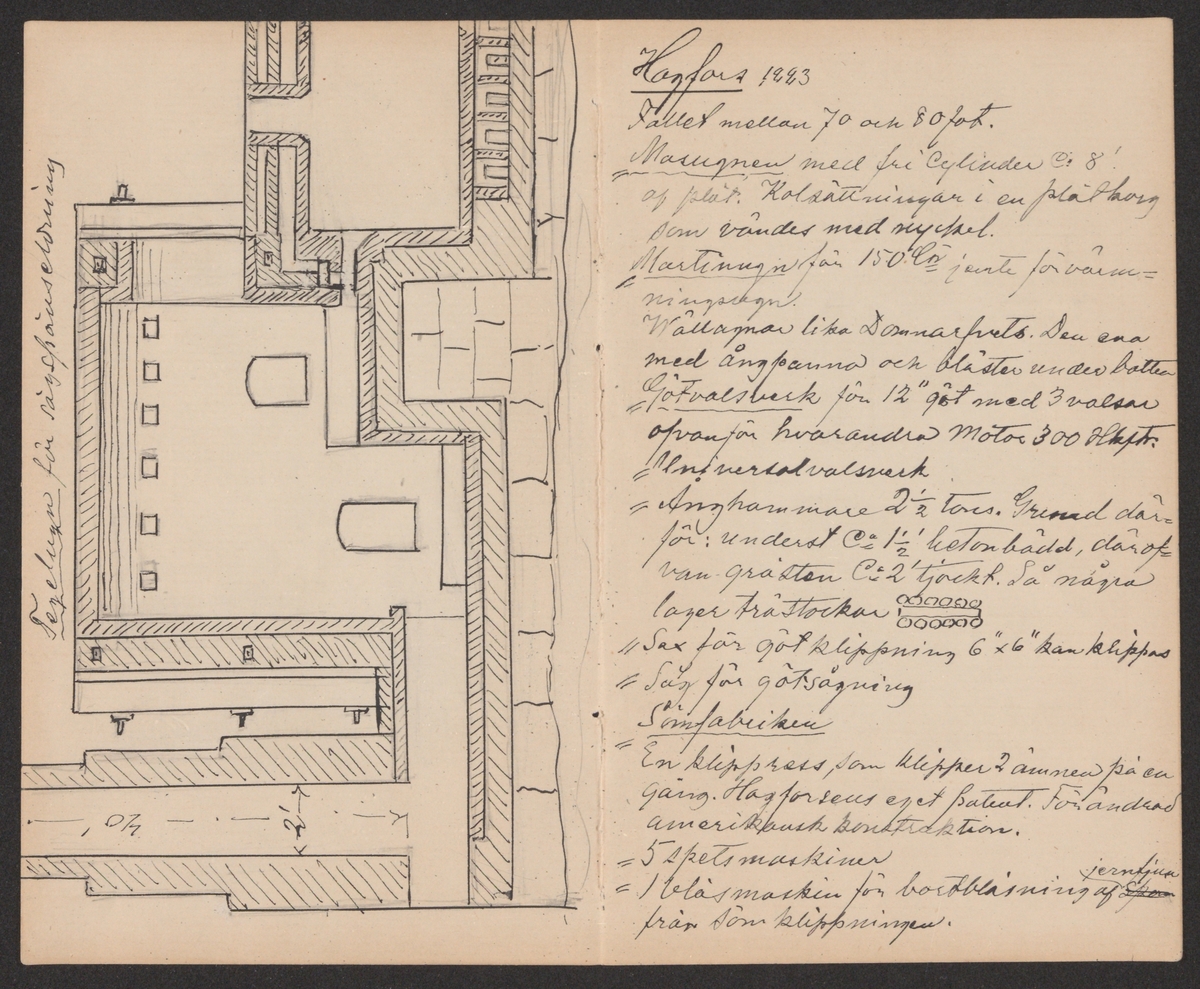 Tegelugn för sågspånseldning
40'
2'
Hagfors 1893
Fallet mellan 70 och 80 fot.
Masugnen med fri Cylinder C: 8'
af plåt. Kolsättningar i en plåtkorg
som vändes med nyckel.
Martinugn för 150 Cr jemte förvärm=
ningsugn.
Wällugnar lika Domnarfvets. Den ena
med ångpanna och bläster under botten
Götvalsverk för 12" göt med 3 valsar
ofvanför hvarandra Motor 300 Hkft.
" Universalvalsverk
" Ånghammare 2½ tons. Grund där=
för: underst Ca 1½' betonbädd, därof=
van gråsten Ca 2' tjockt. Så några
lager trästockar
" Sax för götklippning 6"x6" kan klippas
" Såg för götsågning
" Sömfabriken
En klippress, som klipper 2 ämnen på en
gång. Hagforsens eget patent. Förändrad
amerikansk konstruktion.
" 5 spetsmaskiner
jernfjun
" 1 blåsmaskin för bortblåsning af
från sömklippningen.